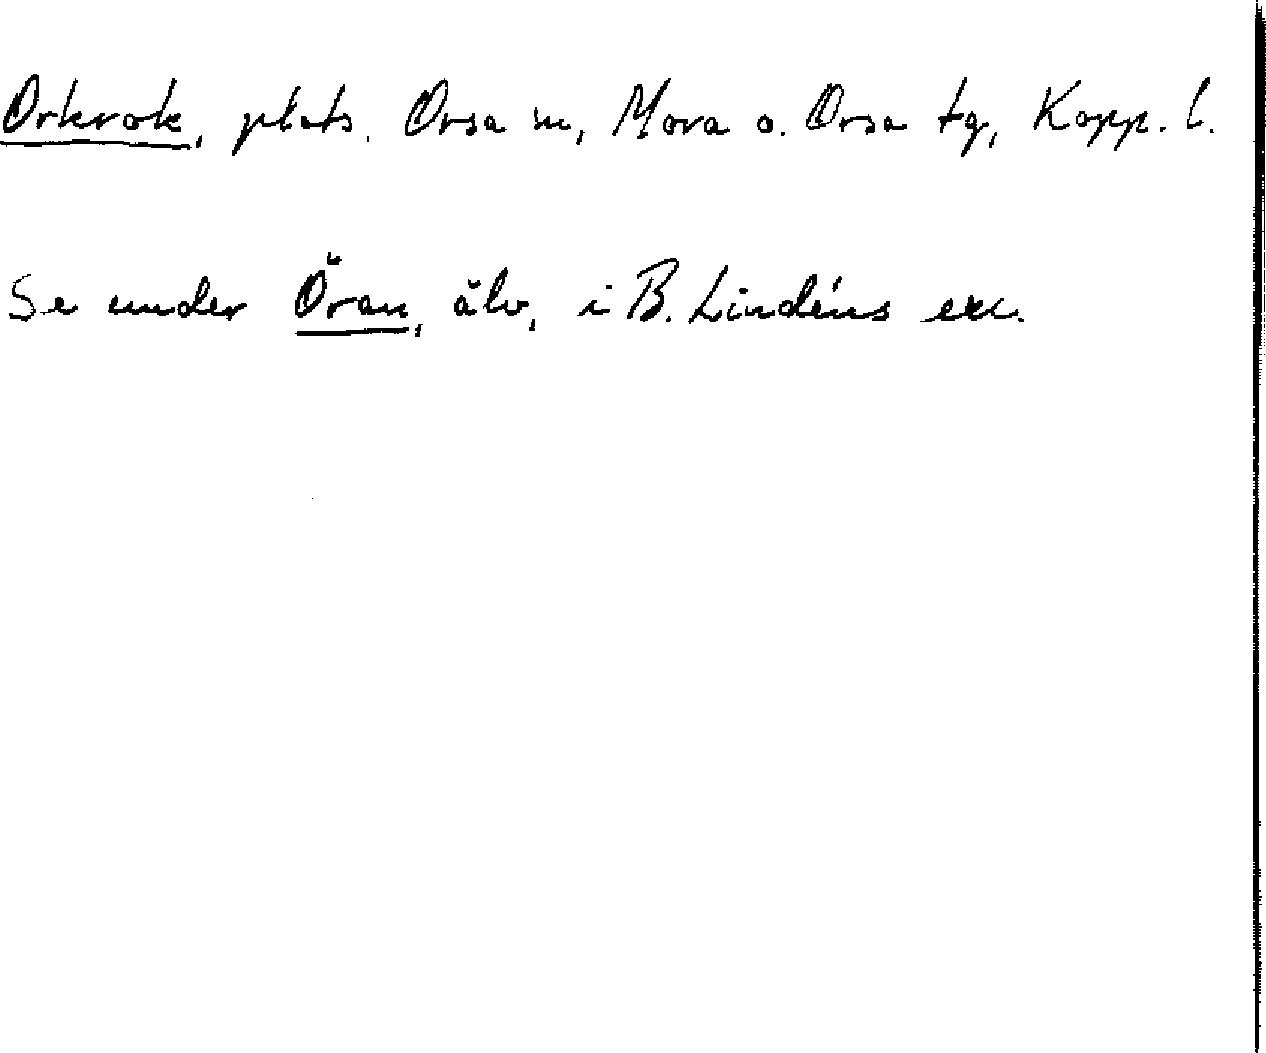 Orkrok, plats, Orsa sn, Mora o. Orsa tg, Kopp. l.
Se under Öran, älv, i B. Lindéns exc.